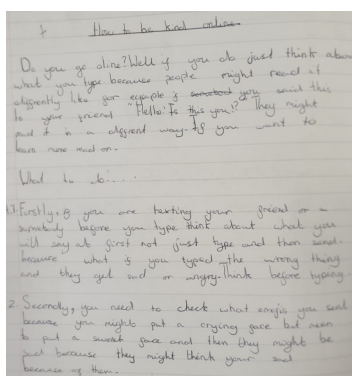 How to be kind online
Do you go oline? Well if you do just think abou
what you type because people might read it
differently like for example if you send this
to your friend "Hello! Is this you!?" They might
read it in a diffrent way. If you want to
learn more read on.
What to do.....
1. Firstly, if you are texting your friend or
somebody before you type think about what you
will say at first not just type and then send.
because what if you typed the wrong thing
and they get sad or angry. Think before typing.
2. Secondly, you need to check what emojis you send
because you might put a crying face but mean
to put a sweat face and then they might be
sad because they might think your sad
because of them.